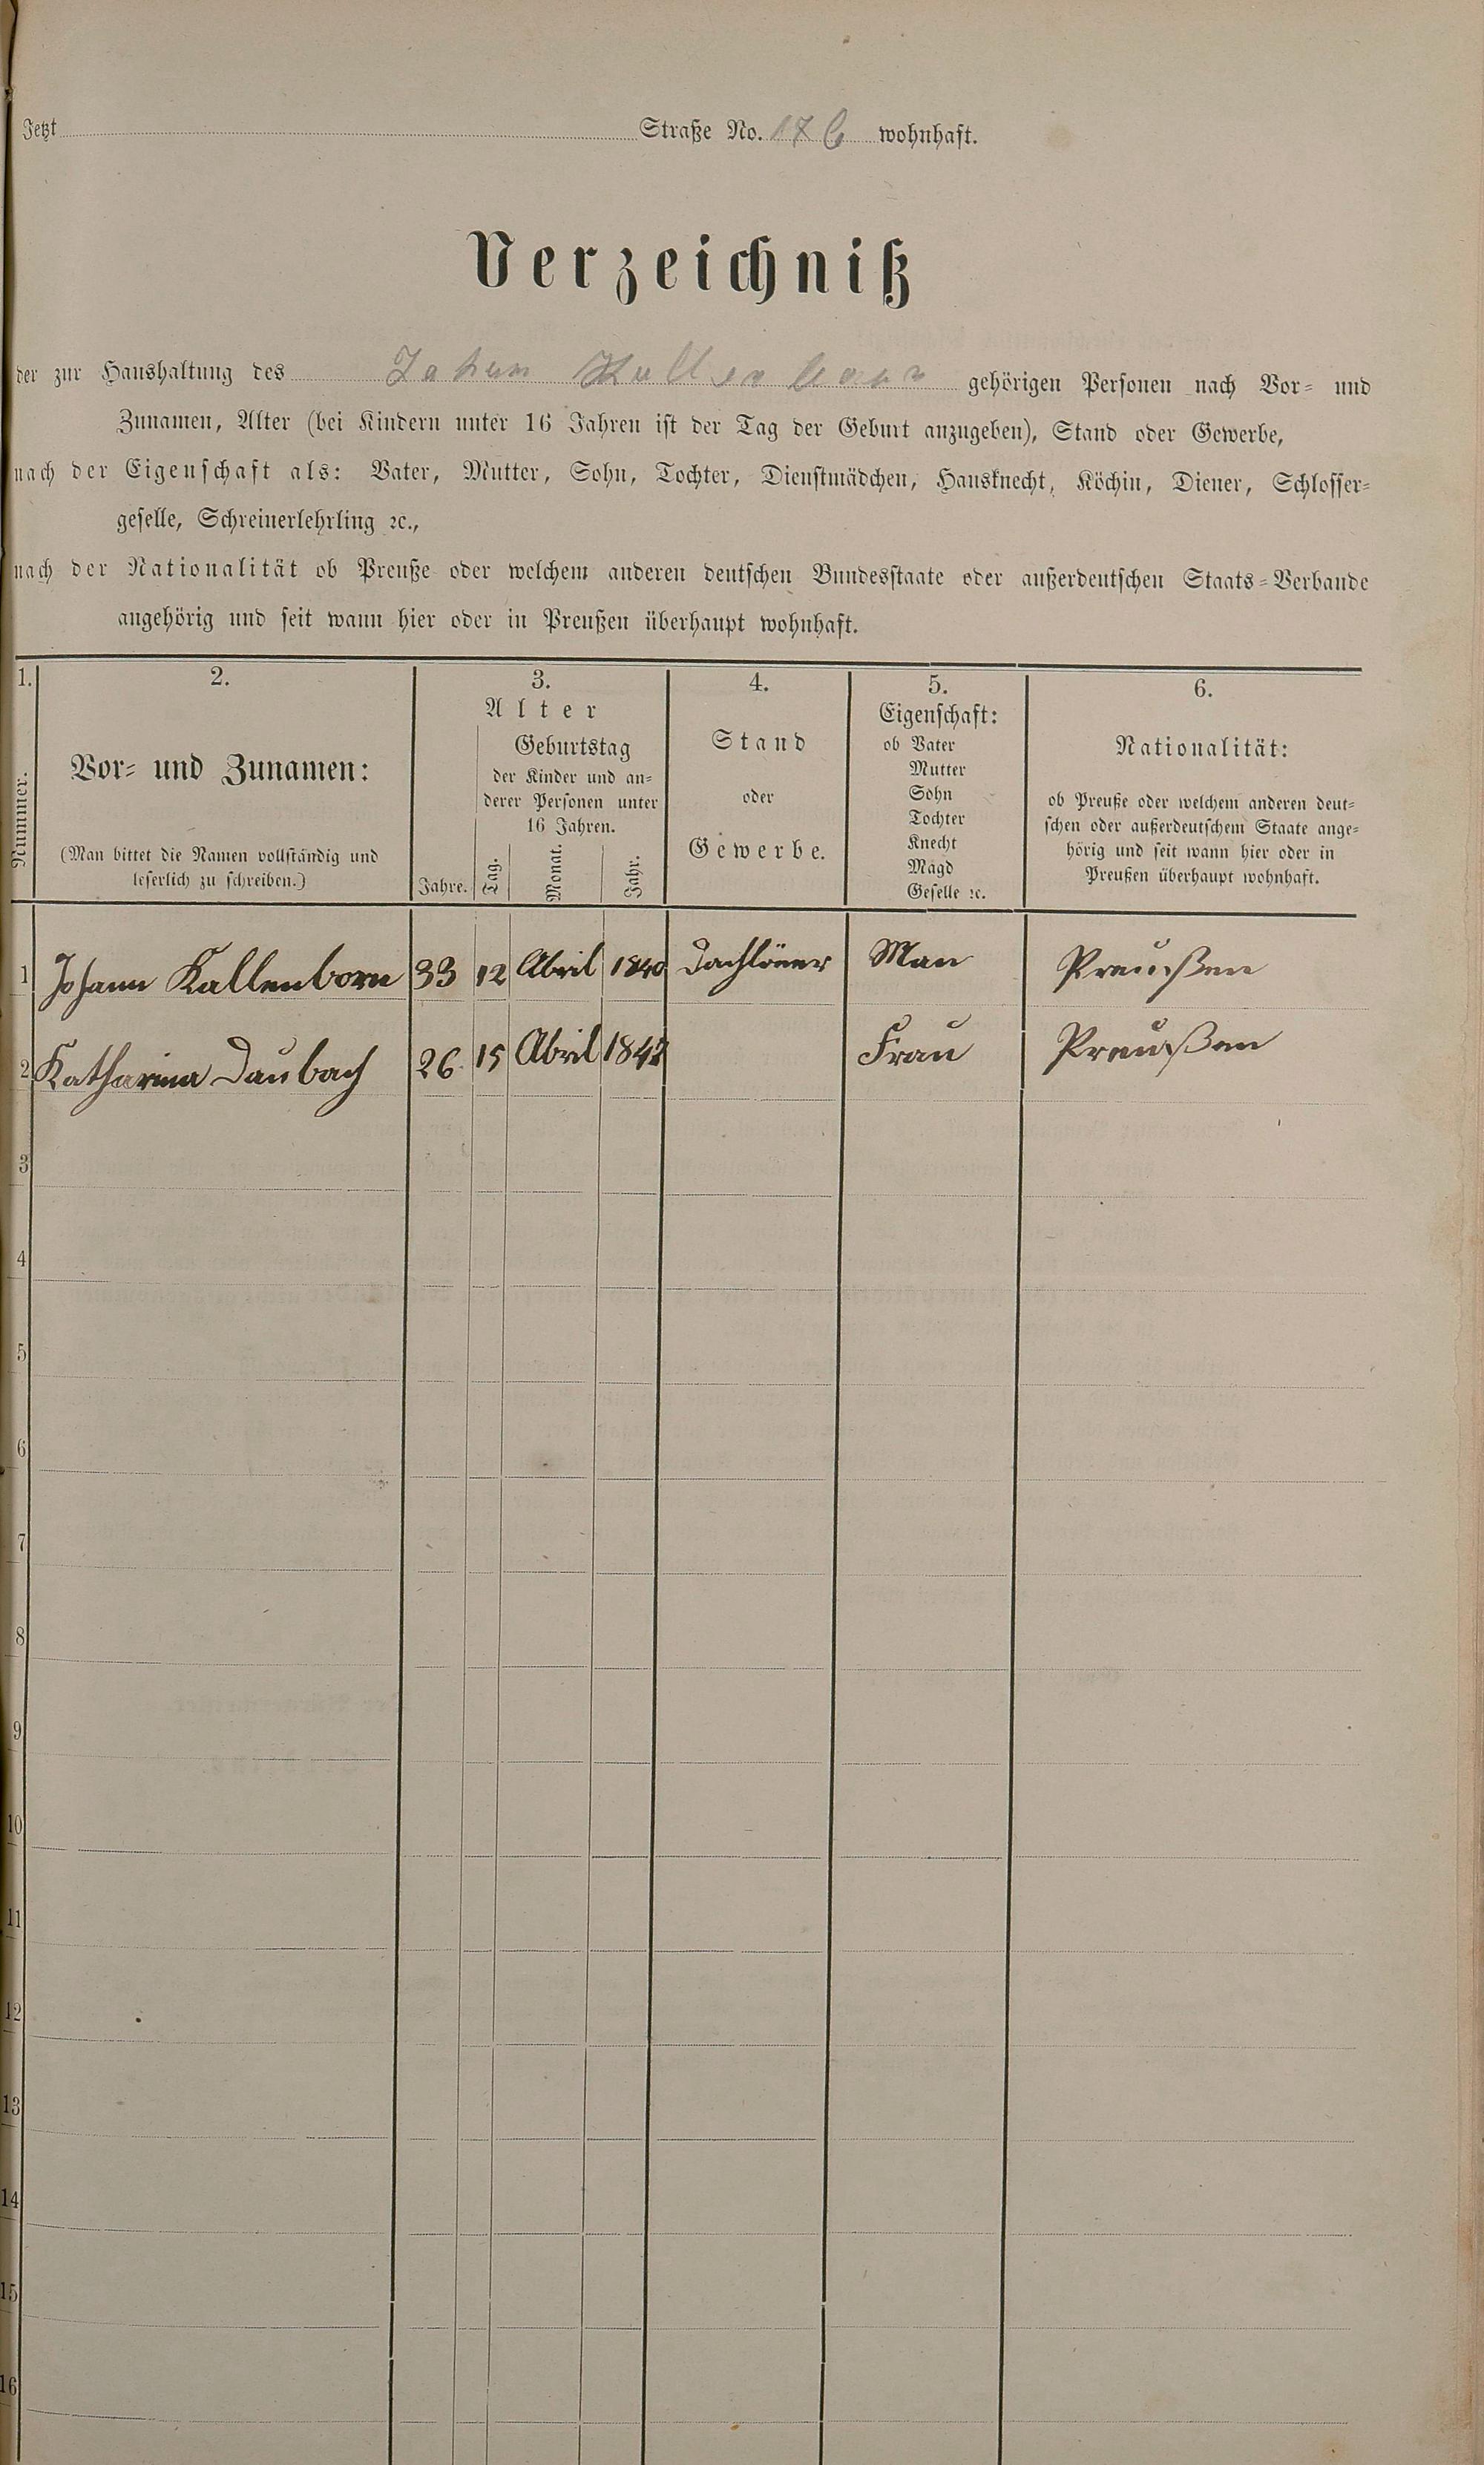 Jetzt Straße No. 176 wohnhaft.
Verzeichniß
der zur Haushaltung des Johann Kallenborn gehörigen Personen nach Vor- und
Zunamen, Alter (bei Kindern unter 16 Jahren ist der Tag der Geburt anzugeben), Stand oder Gewerbe,
nach der Eigenschaft als: Vater, Mutter, Sohn, Tochter, Dienstmädchen, Hausknecht, Köchin, Diener, Schlosser-
geselle, Schreinerlehrling ꝛc.,
nach der Nationalität ob Preuße oder welchem anderen deutschen Bundesstaate oder außerdeutschen Staats-Verbande
angehörig und seit wann hier oder in Preußen überhaupt wohnhaft.
1.
Nummer.
2.
Vor- und Zunamen:
(Man bittet die Namen vollständig und
leserlich zu schreiben.)
3.
Alter
Jahre.
Geburtstag
der Kinder und an-
derer Personen unter
16 Jahren.
Tag.
Monat.
Jahr.
4.
Stand
oder
Gewerbe.
5.
Eigenschaft:
ob Vater
Mutter
Sohn
Tochter
Knecht
Magd
Geselle ꝛc.
6.
Nationalität:
ob Preuße oder welchem anderen deut-
schen oder außerdeutschem Staate ange-
hörig und seit wann hier oder in
Preußen überhaupt wohnhaft.
1 Johann Kallenborn 33 12 Abril 1840 Dachlöner Man Preußen
2 Katharina Daubach 26 15 Abril Frau Preußen
3
4
5
6
7
8
9
10
11
12
13
14
15
16